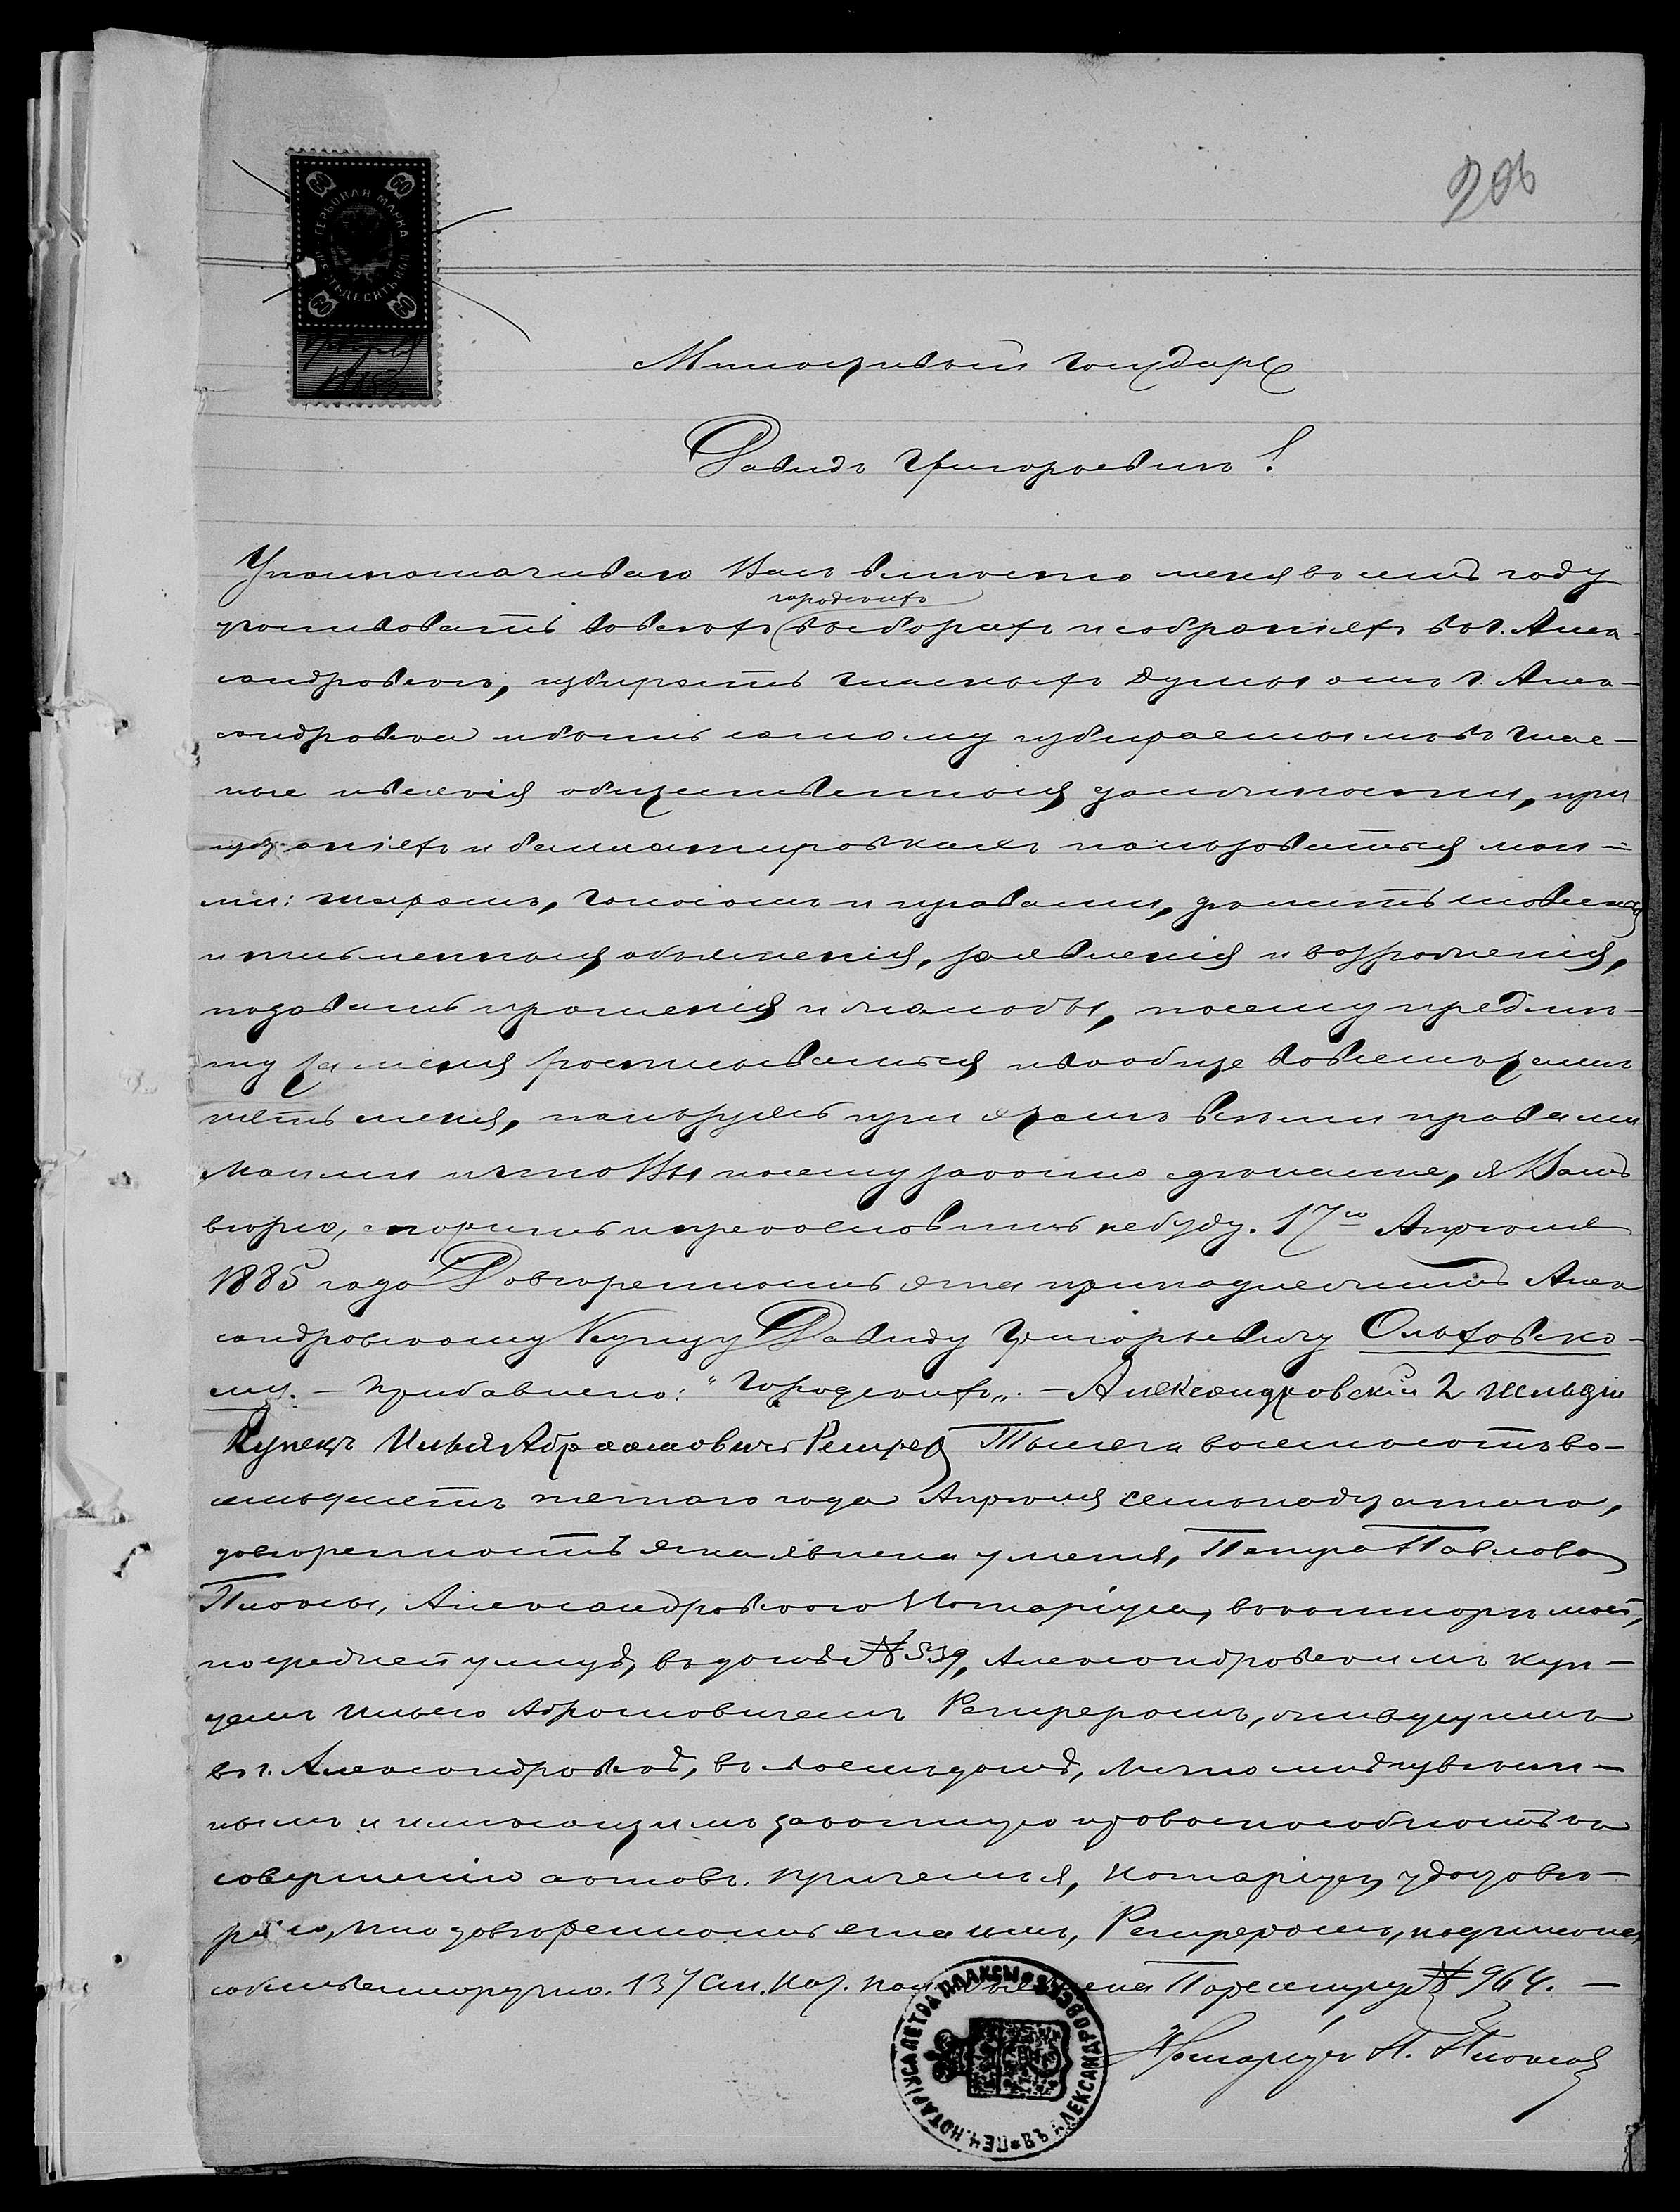 206
ГЕРБОВАЯ МАРКА
ШЕСТЬДЕСЯТЪ КОП.
60 60
60 60
1885
Милостивый Государь
Давидъ Григорьевичъ!
Уполномочиваю Васъ вмѣсто меня въ семъ году
городскихъ
участвовать во всѣхъ выборахъ и собраніяхъ въ г. Алек-
сандровскѣ, избирать гласныхъ думы отъ г. Алек-
сандровска и быть самому избираемымъ въ глас-
ные и всякія общественныя должности, при
избраніяхъ и баллотировкахъ пользоваться мои-
ми: шаромъ, голосомъ и правами, делать словесныя
и письменныя объясненія, заявленія и возраженія,
подавать прошенія и жалобы, по сему предме-
ту за меня росписываться и вообще во всемъ замѣ-
нять меня, пользуясь при этомъ всѣми правами
моими и что Вы по сему законно сдѣлаете, я Вамъ
вѣрю, спорить и прекословить не буду. 17го Апрѣля
1885 года Довѣренность эта принадлежитъ Алек
сандровскому Купцу Давиду Григорьевичу Ольховско-
му. – Прибавлено: "городскихъ". – Александровскій 2 гильдіи
Купецъ Илья Абрамовичъ Рейрер Тысяча восемьсотъ во-
семьдесятъ пятаго года Апрѣля семнадцатаго,
довѣренность эта явлена у меня, Петра Павлова
Александровского Нотаріуса, въ конторѣ моей,
по средней улицѣ, въ домѣ № 539, Александровскимъ куп-
цемъ Ильею Абрамовичемъ Рейреромъ, живущимъ
въ г. Александровскѣ, въ своемъ домѣ, лично мнѣ извѣст-
нымъ и имѣющимъ законную правоспособность къ
совершенію актовъ. При чемъ я, Нотаріусъ, удостовѣ-
ряю, что довѣренность эта имъ, Рейреромъ, подписана
собственноручно. 137 ст. Нот. Пол. Пореестру № 964. –
Нотаріусъ П.
ПЕЧ. НОТАРІУСА ПЕТРА ПЛАКСЫ * ВЪ АЛЕКСАНДРОВСКѢ *